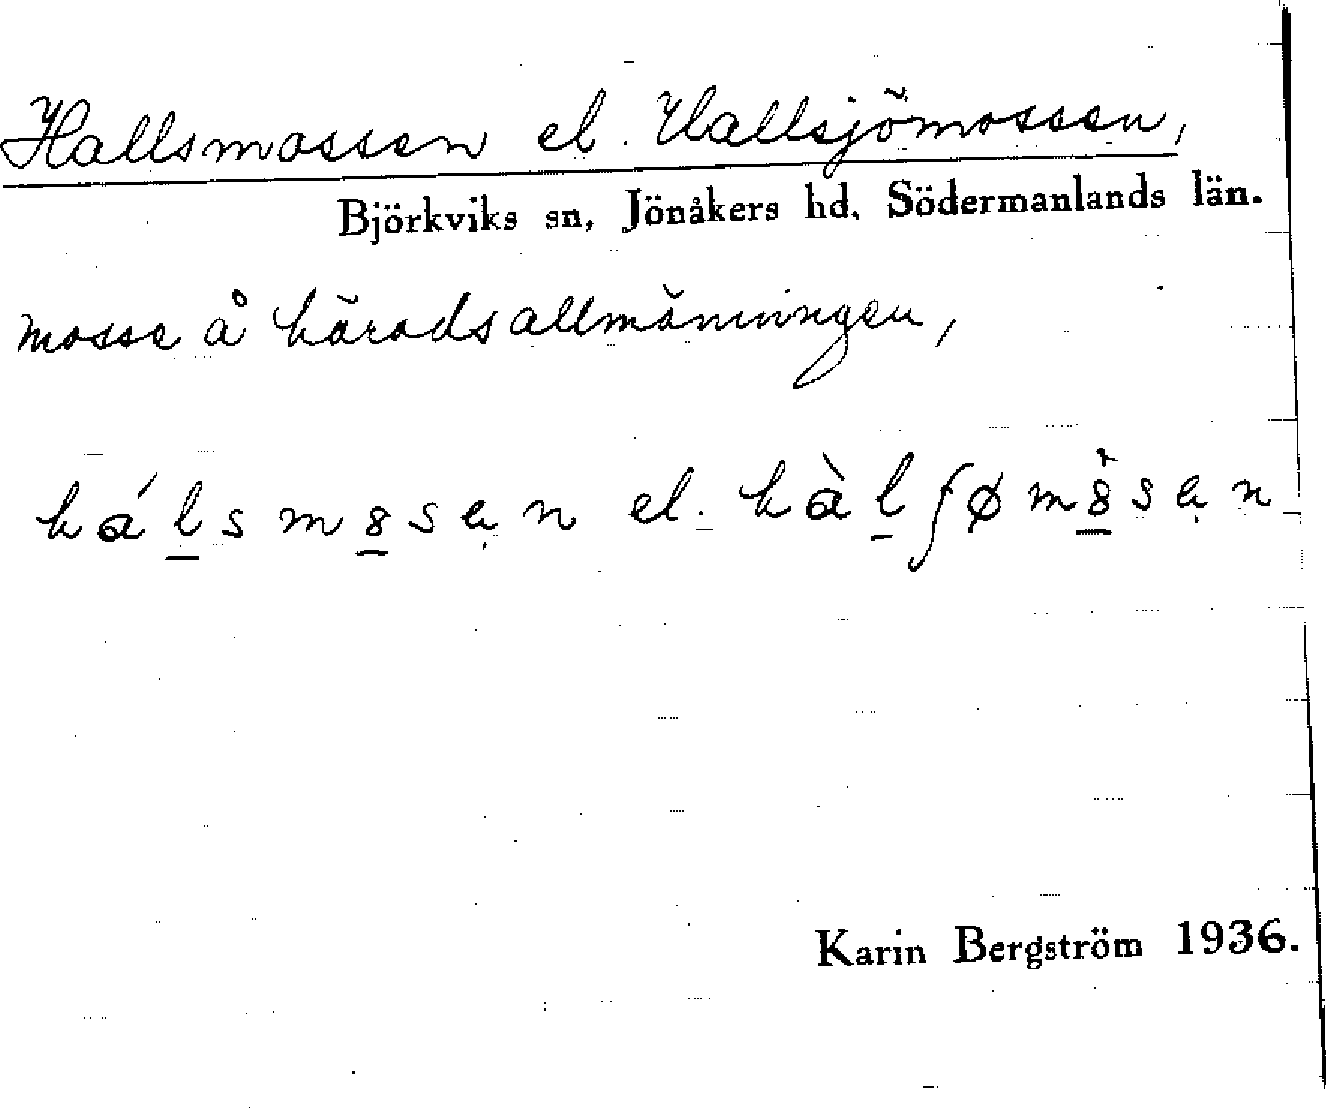 Hallsmossen el. Hallsjömossen,
Björkviks sn, Jönåkers hd, Södermanlands län.
mosse å häradsallmänningen,
há l̲ s m 8̲ s ẹ n el. hà l̲ ʃ ø m 8̲̀ s ẹ n
Karin Bergström 1936.